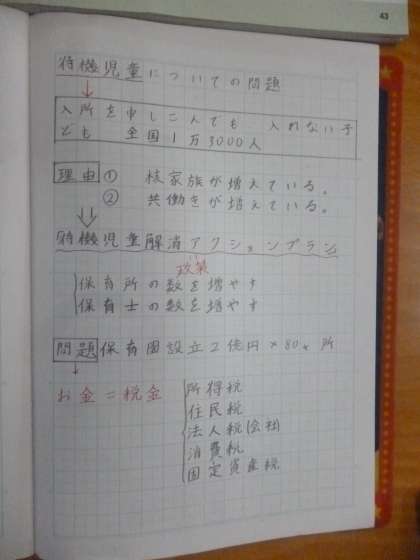 43
待機児童についての問題
↓
入所を申しこんでも 入れない子
ども 全国1万3000人
理由 ① 核家族が増えている。
② 共働きが増えている。
⇓
待機児童解消アクションプラン
政策
保育所の数を増やす
保育士の数を増やす
問題 保育園設立2億円×80ヶ所
↓
お金=税金
所得税
住民税
法人税(会社)
消費税
固定資産税